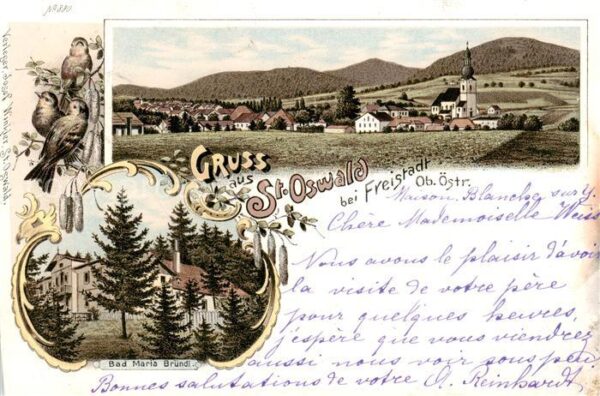 No 880
Gruss
aus
St. Oswald
bei Freistadt
Ob. Östr.
Bad Maria Bründl.
Maison Blanche sur Y.
Chère Mademoiselle Weiss
Nous avons le plaisir d'avoir
la visite de votre père
pour quelques heures,
j'espère que vous viendrez
aussi nous voir sous peu.
Bonnes salutations de votre A. Reinhardt